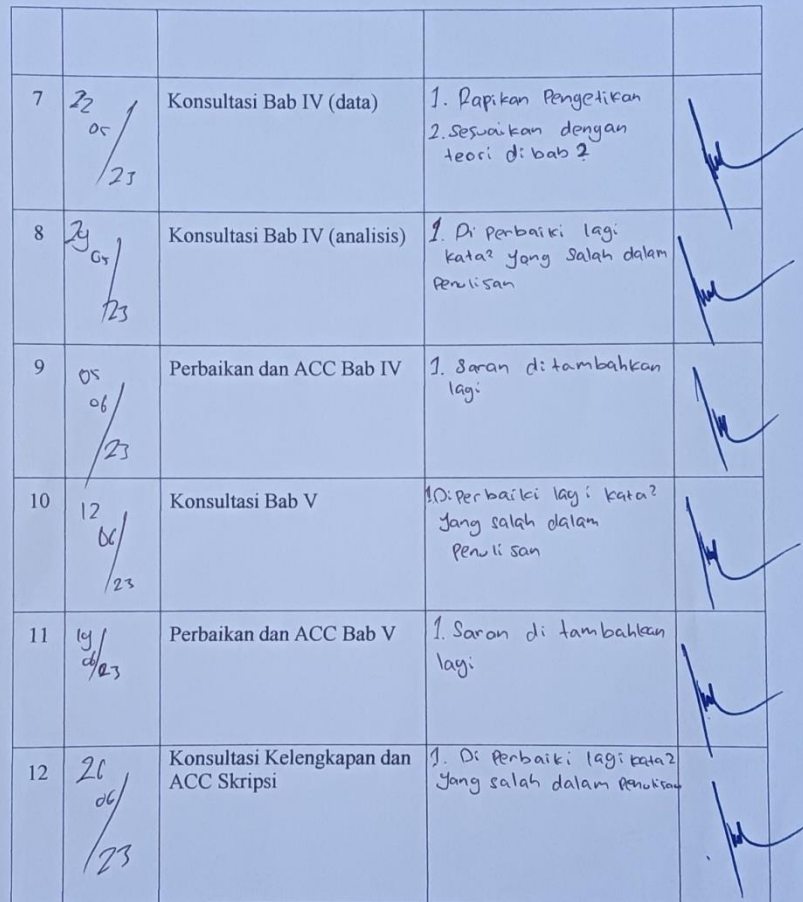 7 22 05 / 23 Konsultasi Bab IV (data) 1. Rapikan Pengetikan
2. Sesuaikan dengan
teori di bab 2
8 29 05 / 23 Konsultasi Bab IV (analisis) 1. Di perbaiki lagi
kata² yang salah dalam
Penulisan
9 05 06 / 23 Perbaikan dan ACC Bab IV 1. Saran ditambahkan
lagi
10 12 06 / 23 Konsultasi Bab V 1. Diperbaiki lagi kata²
yang salah dalam
Penulisan
11 19 / 06 / 23 Perbaikan dan ACC Bab V 1. Saran di tambahkan
lagi
12 26 06 / 23 Konsultasi Kelengkapan dan
ACC Skripsi 1. Di Perbaiki lagi kata²
yang salah dalam Penulisan